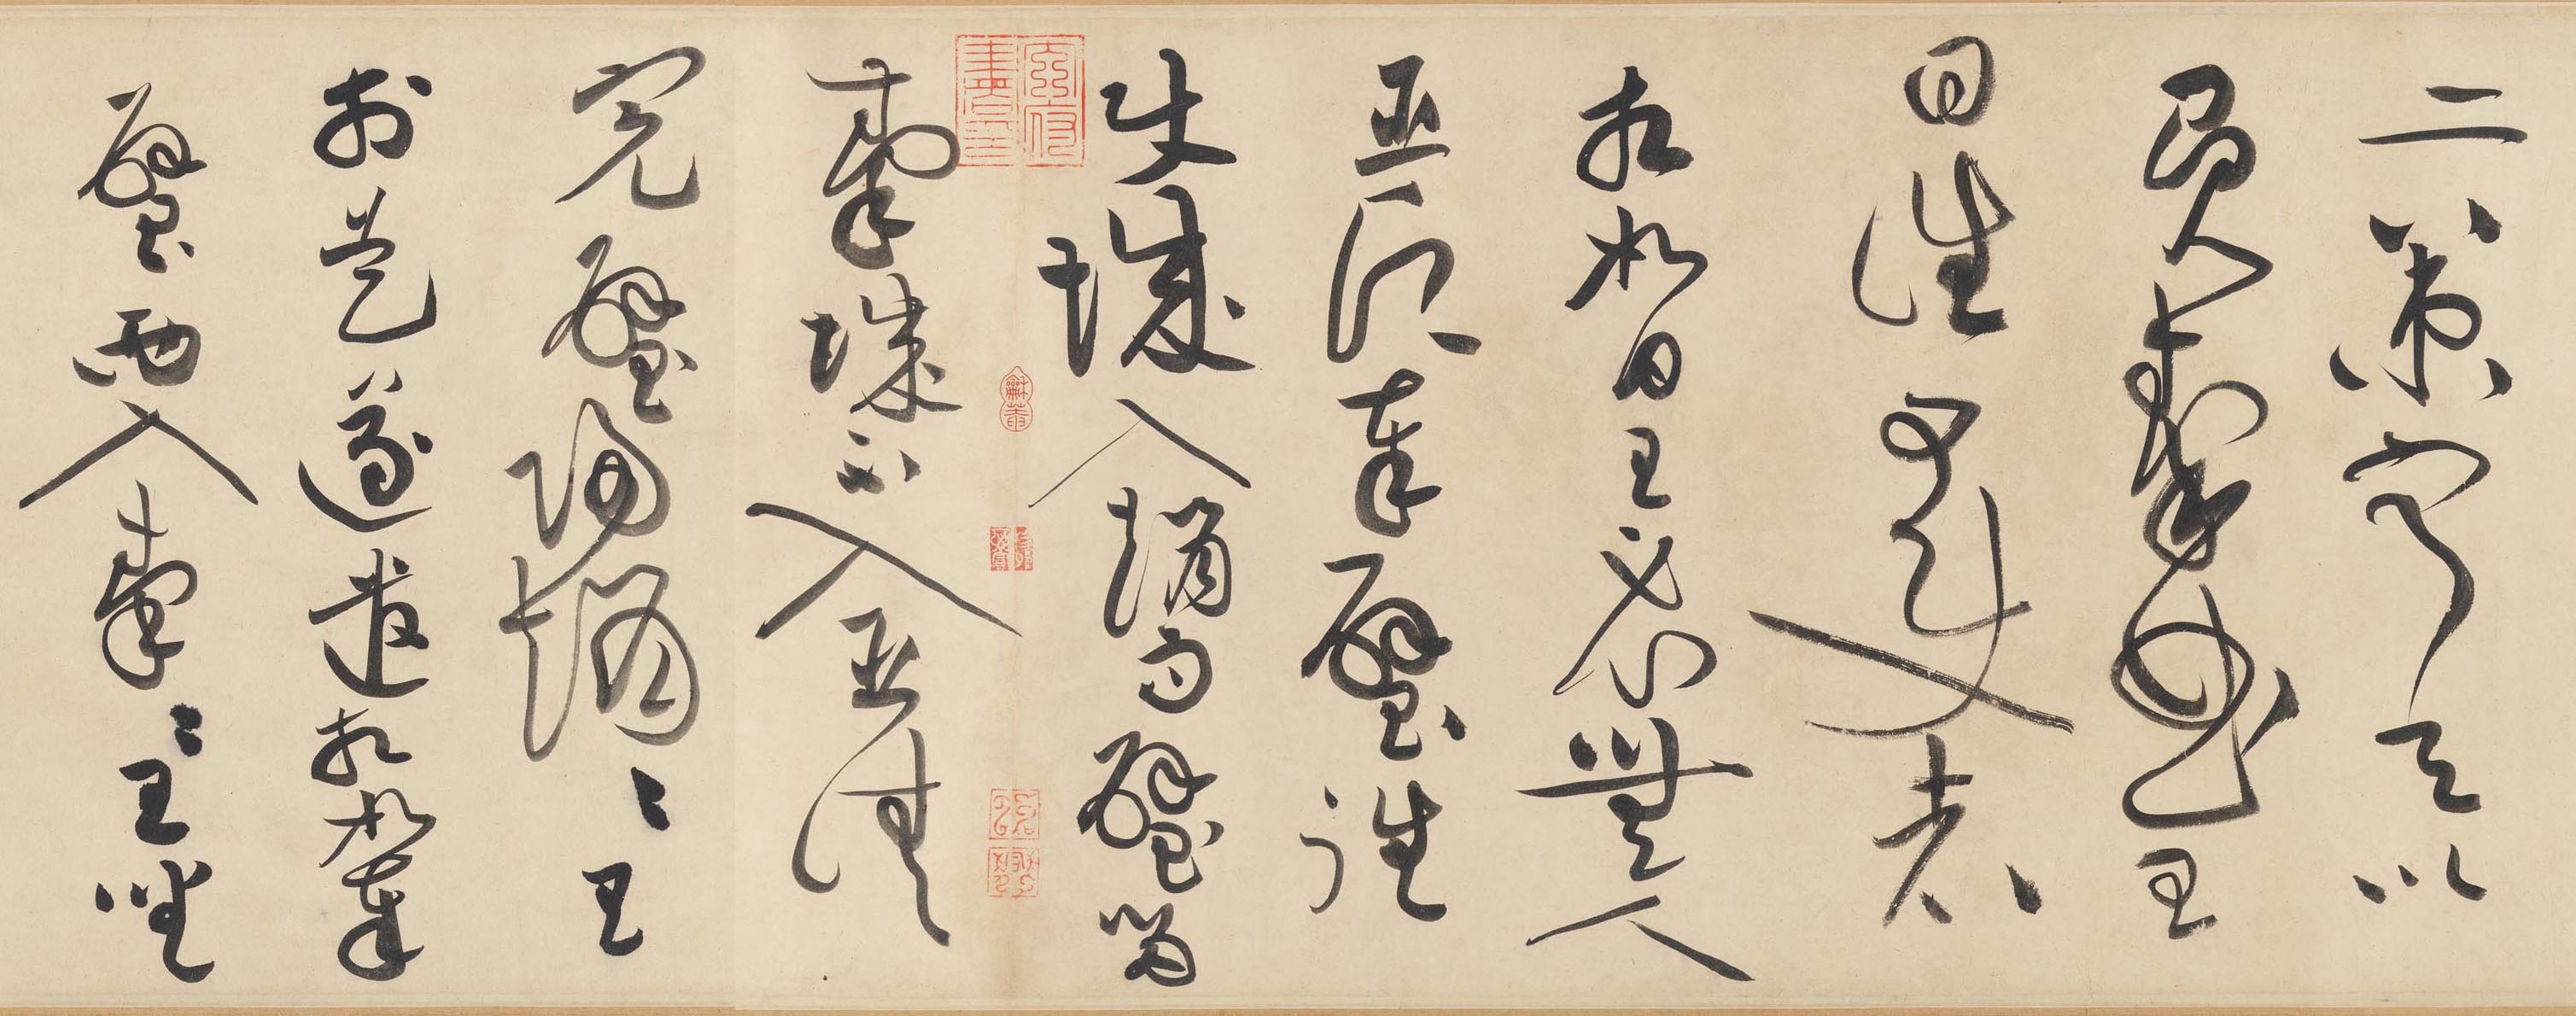 二策寧許以
負秦曲王
曰誰可使者
相如曰王必無人
臣願奉璧往
使城入趙而璧留
秦城不入臣請
完璧歸趙〻王
於是遂遣相如奉
璧西入秦〻王坐